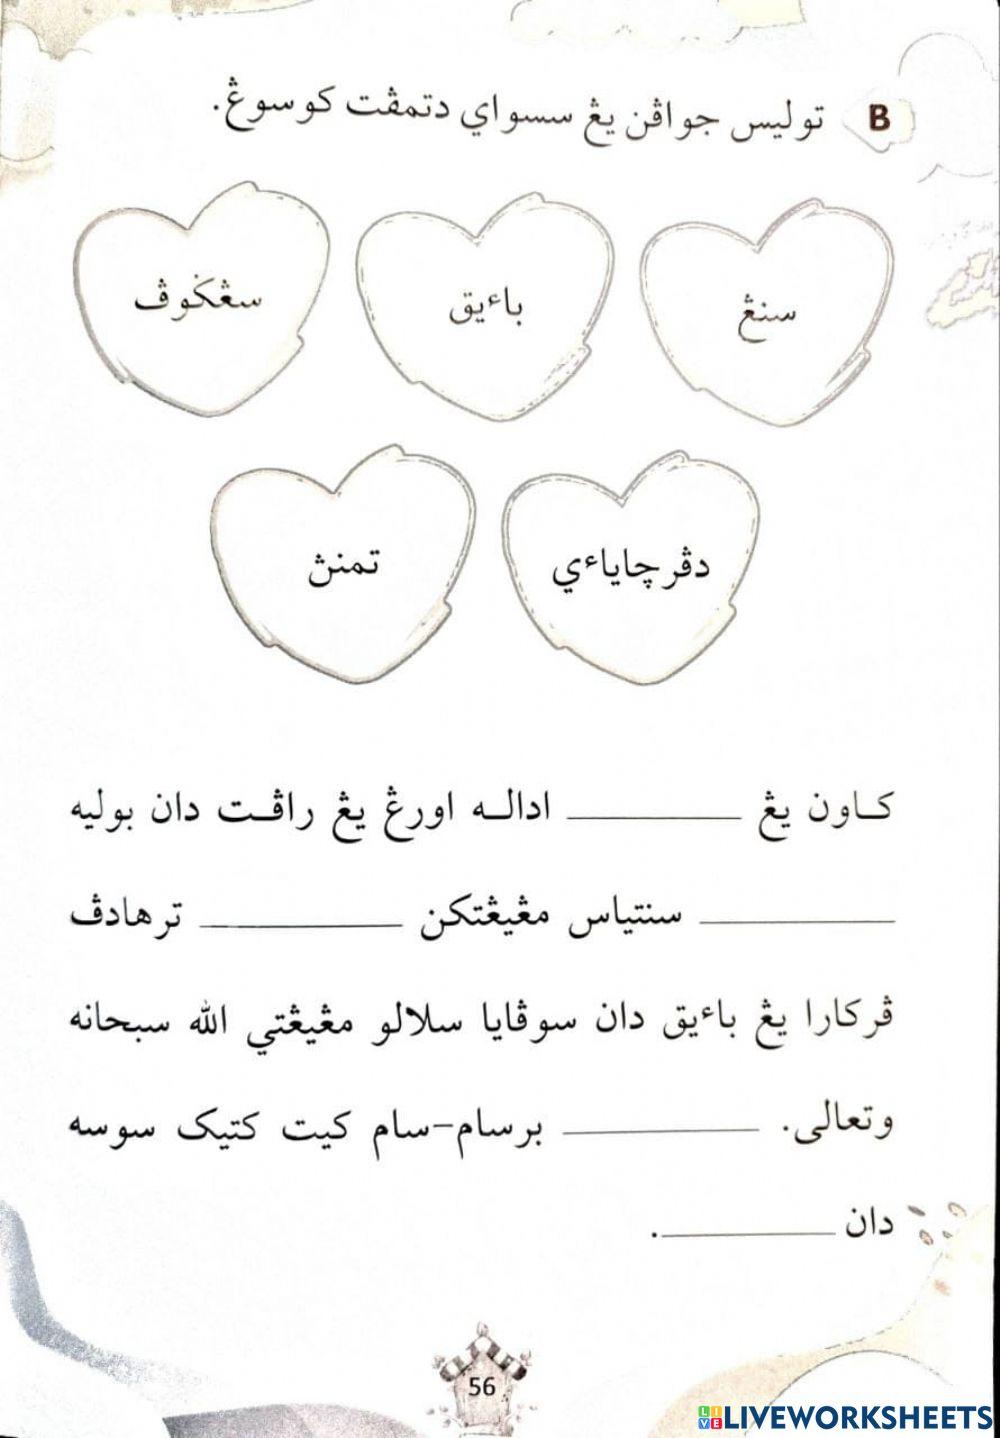 B توليس جواڤن يڠ سسواي دتمڤت كوسوڠ.
سنڠ
باءيق
سڠݢوڤ
دڤرچاياءي
تمنڽ
كاون يڠ __________ اداله اورڠ يڠ راڤت دان بوليه
__________ سنتياس مڠيڠتكن __________ ترهادڤ
ڤركارا يڠ باءيق دان سوڤايا سلالو مڠيڠتي الله سبحانه
وتعالى. __________ برسام-سام كيت كتيک سوسه
دان __________.
56
LIVEWORKSHEETS